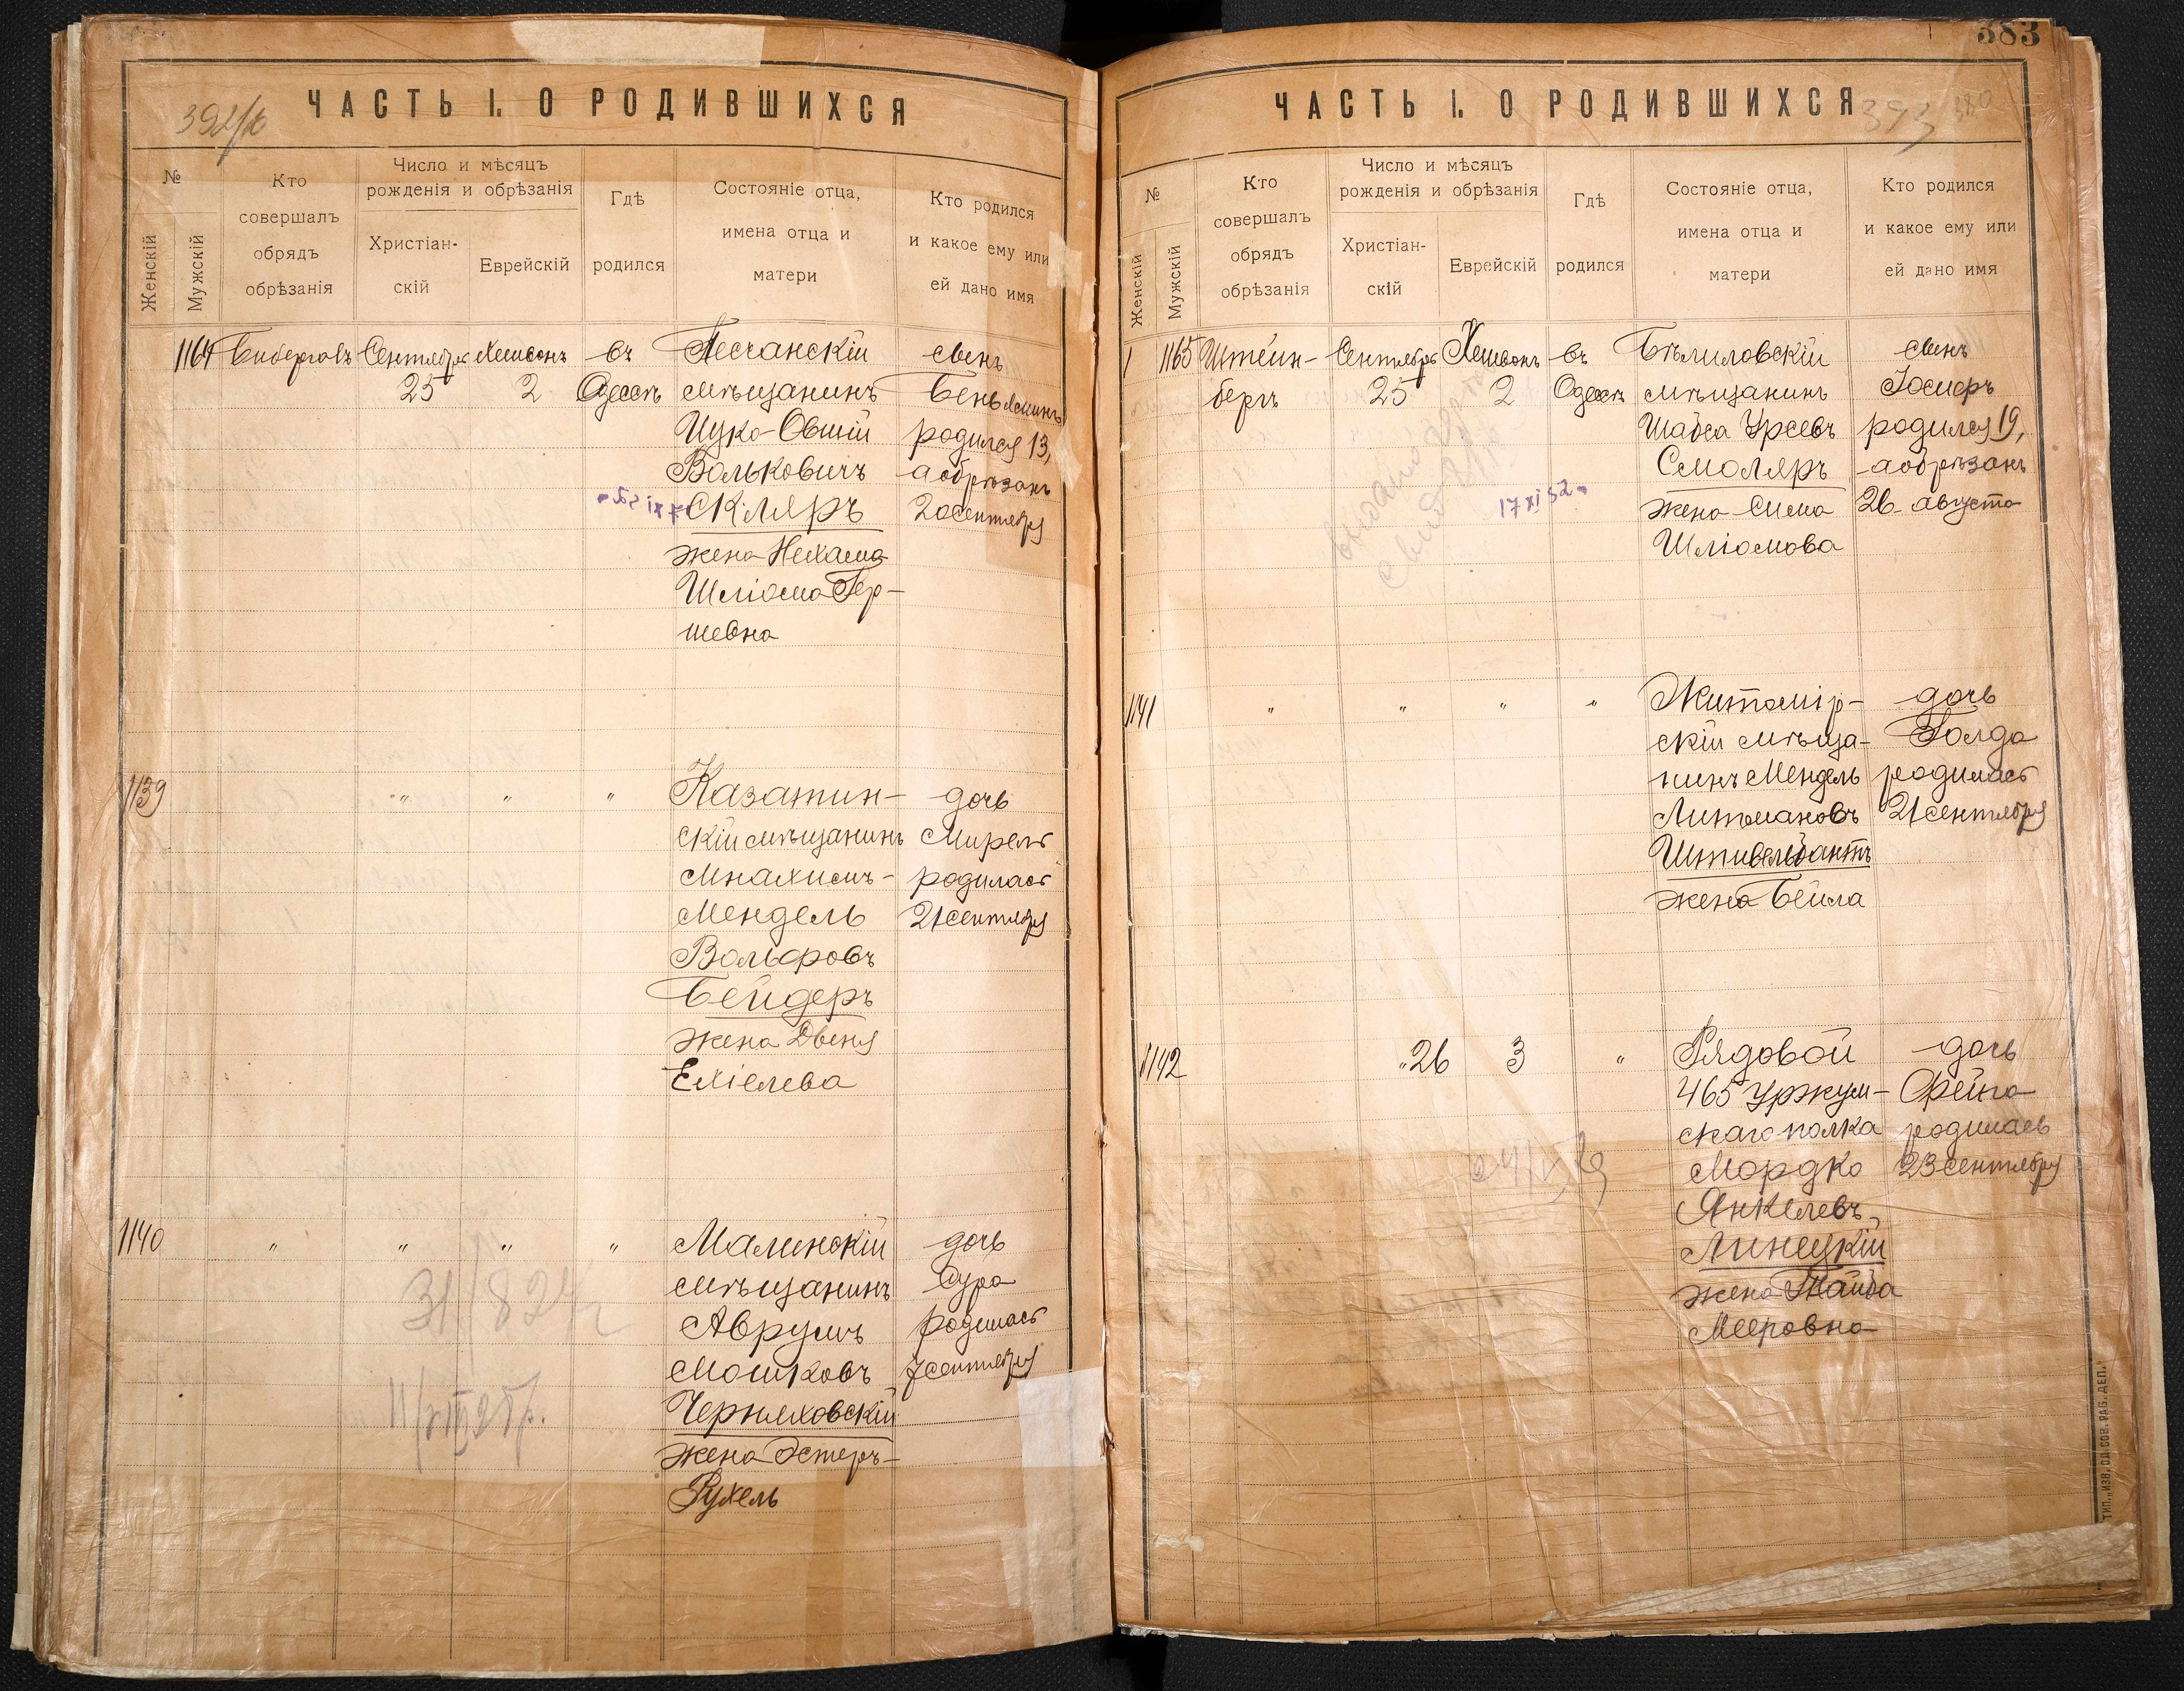 392/б
ЧАСТЬ I. О РОДИВШИХСЯ
№
Женскій
Мужскій
Кто
совершалъ
обрядъ
обрѣзанія
Число и мѣсяцъ
рожденія и обрѣзанія
Христіан-
скій
Еврейскій
Гдѣ
родился
Состояніе отца,
имена отца и
матери
Кто родился
и какое ему или
ей дано имя
1164
Сентября
25
Хешвонъ
2
въ
Одессѣ
Песчанскій
мѣщанинъ
Ицко-Овшій
Вольковичъ
Скляръ
жена Нехама
Шліома Гер-
шевна
сынъ
Беньяминъ
родился 13,
а обрѣзанъ
20 сентября
1139
"
"
"
Казатин-
скій мѣщанинъ
Мнахимъ-
Мендель
Вольфовъ
Бейдеръ
жена Двеня
Ехіелева
дочь
Мирель
родилась
21 сентября
1140
"
"
"
"
31/824г
11/VIII 25г.
Малинскій
мѣщанинъ
Аврумъ
Мошковъ
Черняховскій
жена Эстеръ-
Рухель
дочь
Сура
родилась
7 сентября
383
ЧАСТЬ I. О РОДИВШИХСЯ
393
380
№
Женскій
Мужскій
Кто
совершалъ
обрядъ
обрѣзанія
Число и мѣсяцъ
рожденія и обрѣзанія
Христіан-
скій
Еврейскій
Гдѣ
родился
Состояніе отца,
имена отца и
матери
Кто родился
и какое ему или
ей дано имя
1165
Штейн-
бергъ
Сентября
25
Хешвонъ
2
въ
Одессѣ
17 XI 52
Бѣлиловскій
мѣщанинъ
Шабса Урсевъ
Смоляръ
жена Сима
Шліомова
сынъ
Іосифъ
родился 19,
а обрѣзанъ
26 августа
1141
"
"
"
"
Житомір-
скій мѣща-
нинъ Мендель
Литмановъ
Штивельбантъ
жена Бейла
дочь
Голда
родилась
21 сентября
1142
"26
3
"
Рядовой
465 Уржум-
скаго полка
Мордко
Янкелевъ
Линецкій
жена Тайба
Мееровна
дочь
Фейга
родилась
23 сентября
ТИП. „ИЗВ. ОД. СОВ. РАБ. ДЕП.“